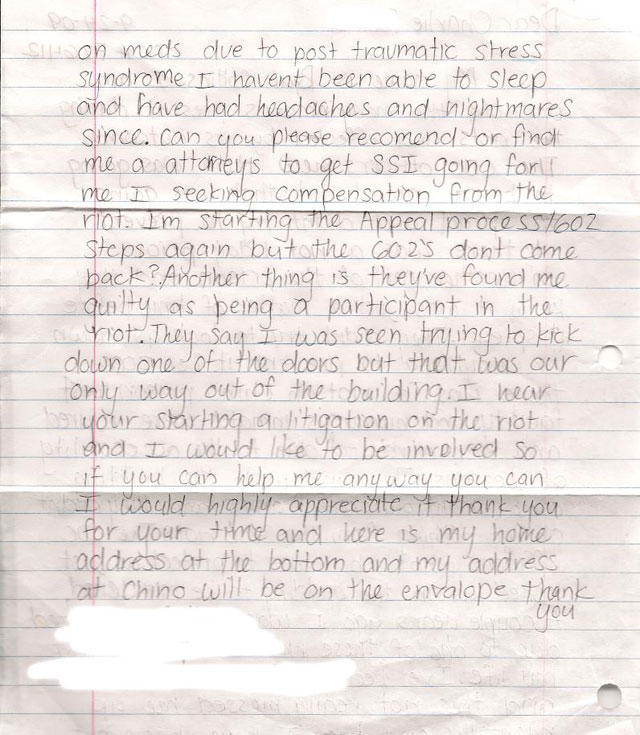 on meds due to post traumatic stress
syndrome I havent been able to sleep
and have had headaches and nightmares
since. Can you please recomend or find
me a attorneys to get SSI going for
me I seeking compensation from the
riot. Im starting the Appeal process/602
steps again but the 602's dont come
back? Another thing is they've found me
guilty as being a participant in the
riot. They say I was seen trying to kick
down one of the doors but that was our
only way out of the building. I hear
your starting a litigation on the riot
and I would like to be involved so
if you can help me anyway you can
I would highly appreciate it thank you
for your time and here is my home
address at the bottom and my address
at Chino will be on the envalope thank
you